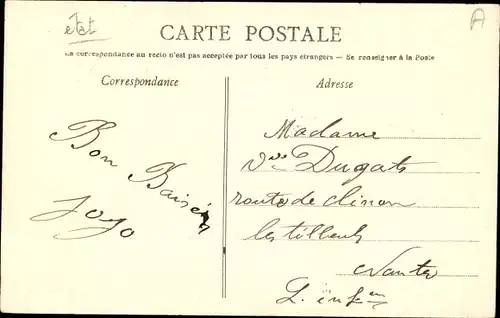 état
A
CARTE POSTALE
La correspondance au recto n'est pas acceptée par tous les pays étrangers — Se renseigner à la Poste
Correspondance
Adresse
Bon Baisers
Jojo
Madame
Vve Dugats
route de Clisson
les tilleuls
Nantes
L. infre